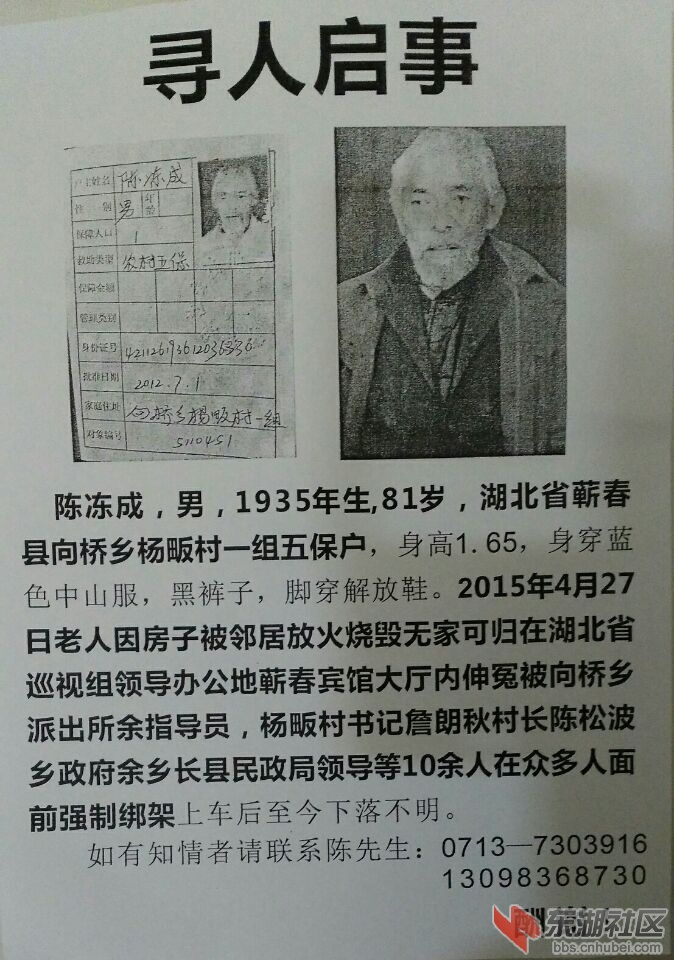 寻人启事
户主姓名 陈冻成
性 别 男 年龄
保障人口 1
救助类型 农村五保
保障金额
管理类别
身份证号
批准日期 2012.7.1
家庭住址 向桥乡杨畈村一组
对象编号 5110451
陈冻成，男，1935年生,81岁，湖北省蕲春
县向桥乡杨畈村一组五保户，身高1.65，身穿蓝
色中山服，黑裤子，脚穿解放鞋。2015年4月27
日老人因房子被邻居放火烧毁无家可归在湖北省
巡视组领导办公地蕲春宾馆大厅内伸冤被向桥乡
派出所余指导员，杨畈村书记詹朗秋村长陈松波
乡政府余乡长县民政局领导等10余人在众多人面
前强制绑架上车后至今下落不明。
如有知情者请联系陈先生：0713—7303916
13098368730
东湖社区
bbs.cnhubei.com